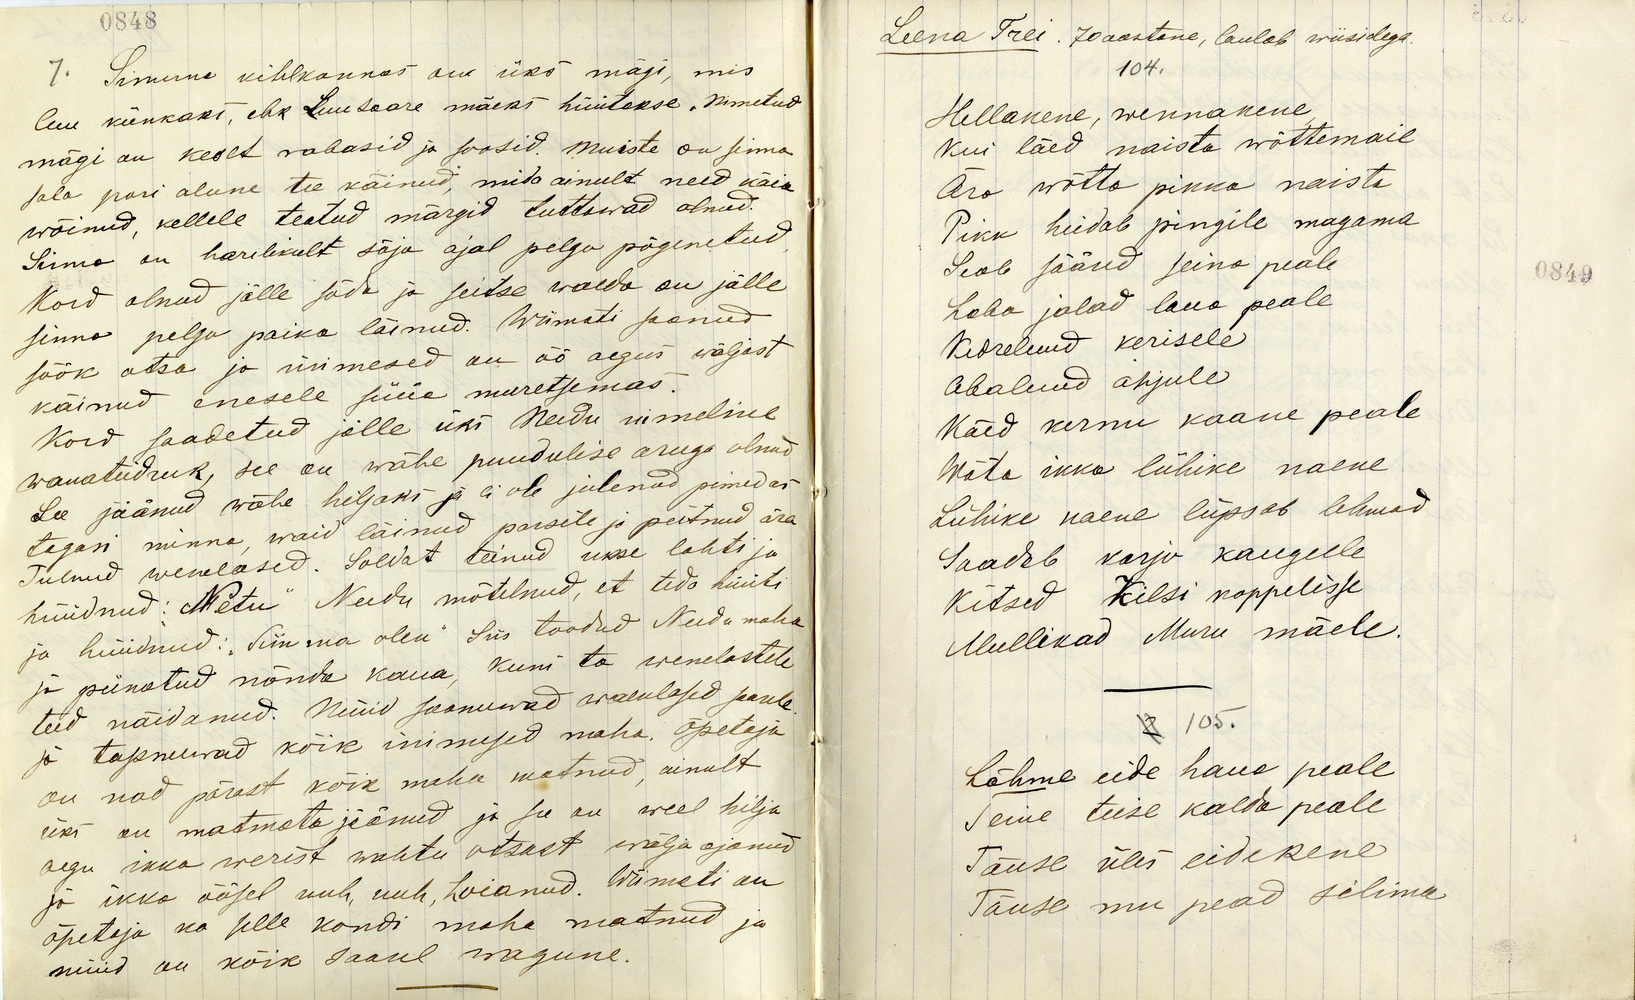 0848
7. Simuna kihlkonnas on üks mägi, mis
luu künkaks, ehk Luusaare mäeks hüütakse. Nimetud
mägi on keset rabasid ja soosid. Muiste on sinna
sala pari alune tee käinud, mida ainult need käia
wõinud, kellele teatud märgid tuttawad olnud.
Sinna on harilikult sõja ajal pelgu põgenetud.
Kord olnud jälle sõda ja seitse walda on jälle
sinna pelgu paika läinud. Wiimati saanud
söök otsa ja inimesed on öö aegus wäljast
käinud enesele süüa muretsemas.
Kord saadetud jälle üks Needu nimeline
wanatüdruk, see on wähe puudulise aruga olnud
See jäänud wähe hiljaks ja ei ole julenud pimedas
tagasi minna, waid läinud parsile ja peitnud ära
Tulnud wenelased. Soldat teinud ukse lahti ja
hüüdnud: "Netu" Needu mõtelnud, et teda hüüti
ja hüüdnud: "Siin ma olen" Siis toodud Needu maha
ja piinatud nõnda kaua, kuni ta wenelastele
teed näidanud. Nüüd saanuwad waenlased saarele
ja tapnuwad kõik inimesed maha. Õpetaja
on nad pärast kõik maha matnud, ainult
üks on matmata jäänud ja see on weel hilja
aegu ikka werist wahtu otsast wälja ajanud
ja ikka öösel uuh, uuh, hoianud. Wiimati on
õpetaja ka selle kondi maha matnud ja
nüüd on kõik saarel wagune.
Leena Trei. 70 aastane, laulab wiisidega.
104.
Hellakene, wennakene,
Kui läed naista wõttemaie
Ära wõtta pikka naista
Pikk heidab pingile magama
Seab sääred seina peale
Laba jalad laua peale
Kedreluud kerisele
Abaluud ahjule
Käed kernu kaane peale
Wõta ikka lühike naene
Lühike naene lüpsab lehmad
Saadab karja kaugelle
Kitsed Kilsi koppelisse
Mullikad Muru mäele.
0849
105.
Lähme eide haua peale
Teine teise kalda peale
Tõuse üles eidekene
Tõuse mu pead silima